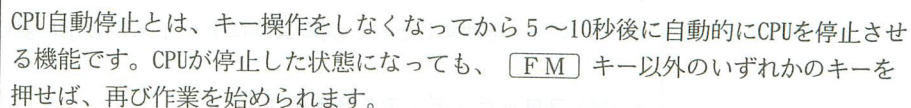 CPU自動停止とは、キー操作をしなくなってから5～10秒後に自動的にCPUを停止させ
る機能です。CPUが停止した状態になっても、 FM キー以外のいずれかのキーを
押せば、再び作業を始められます。